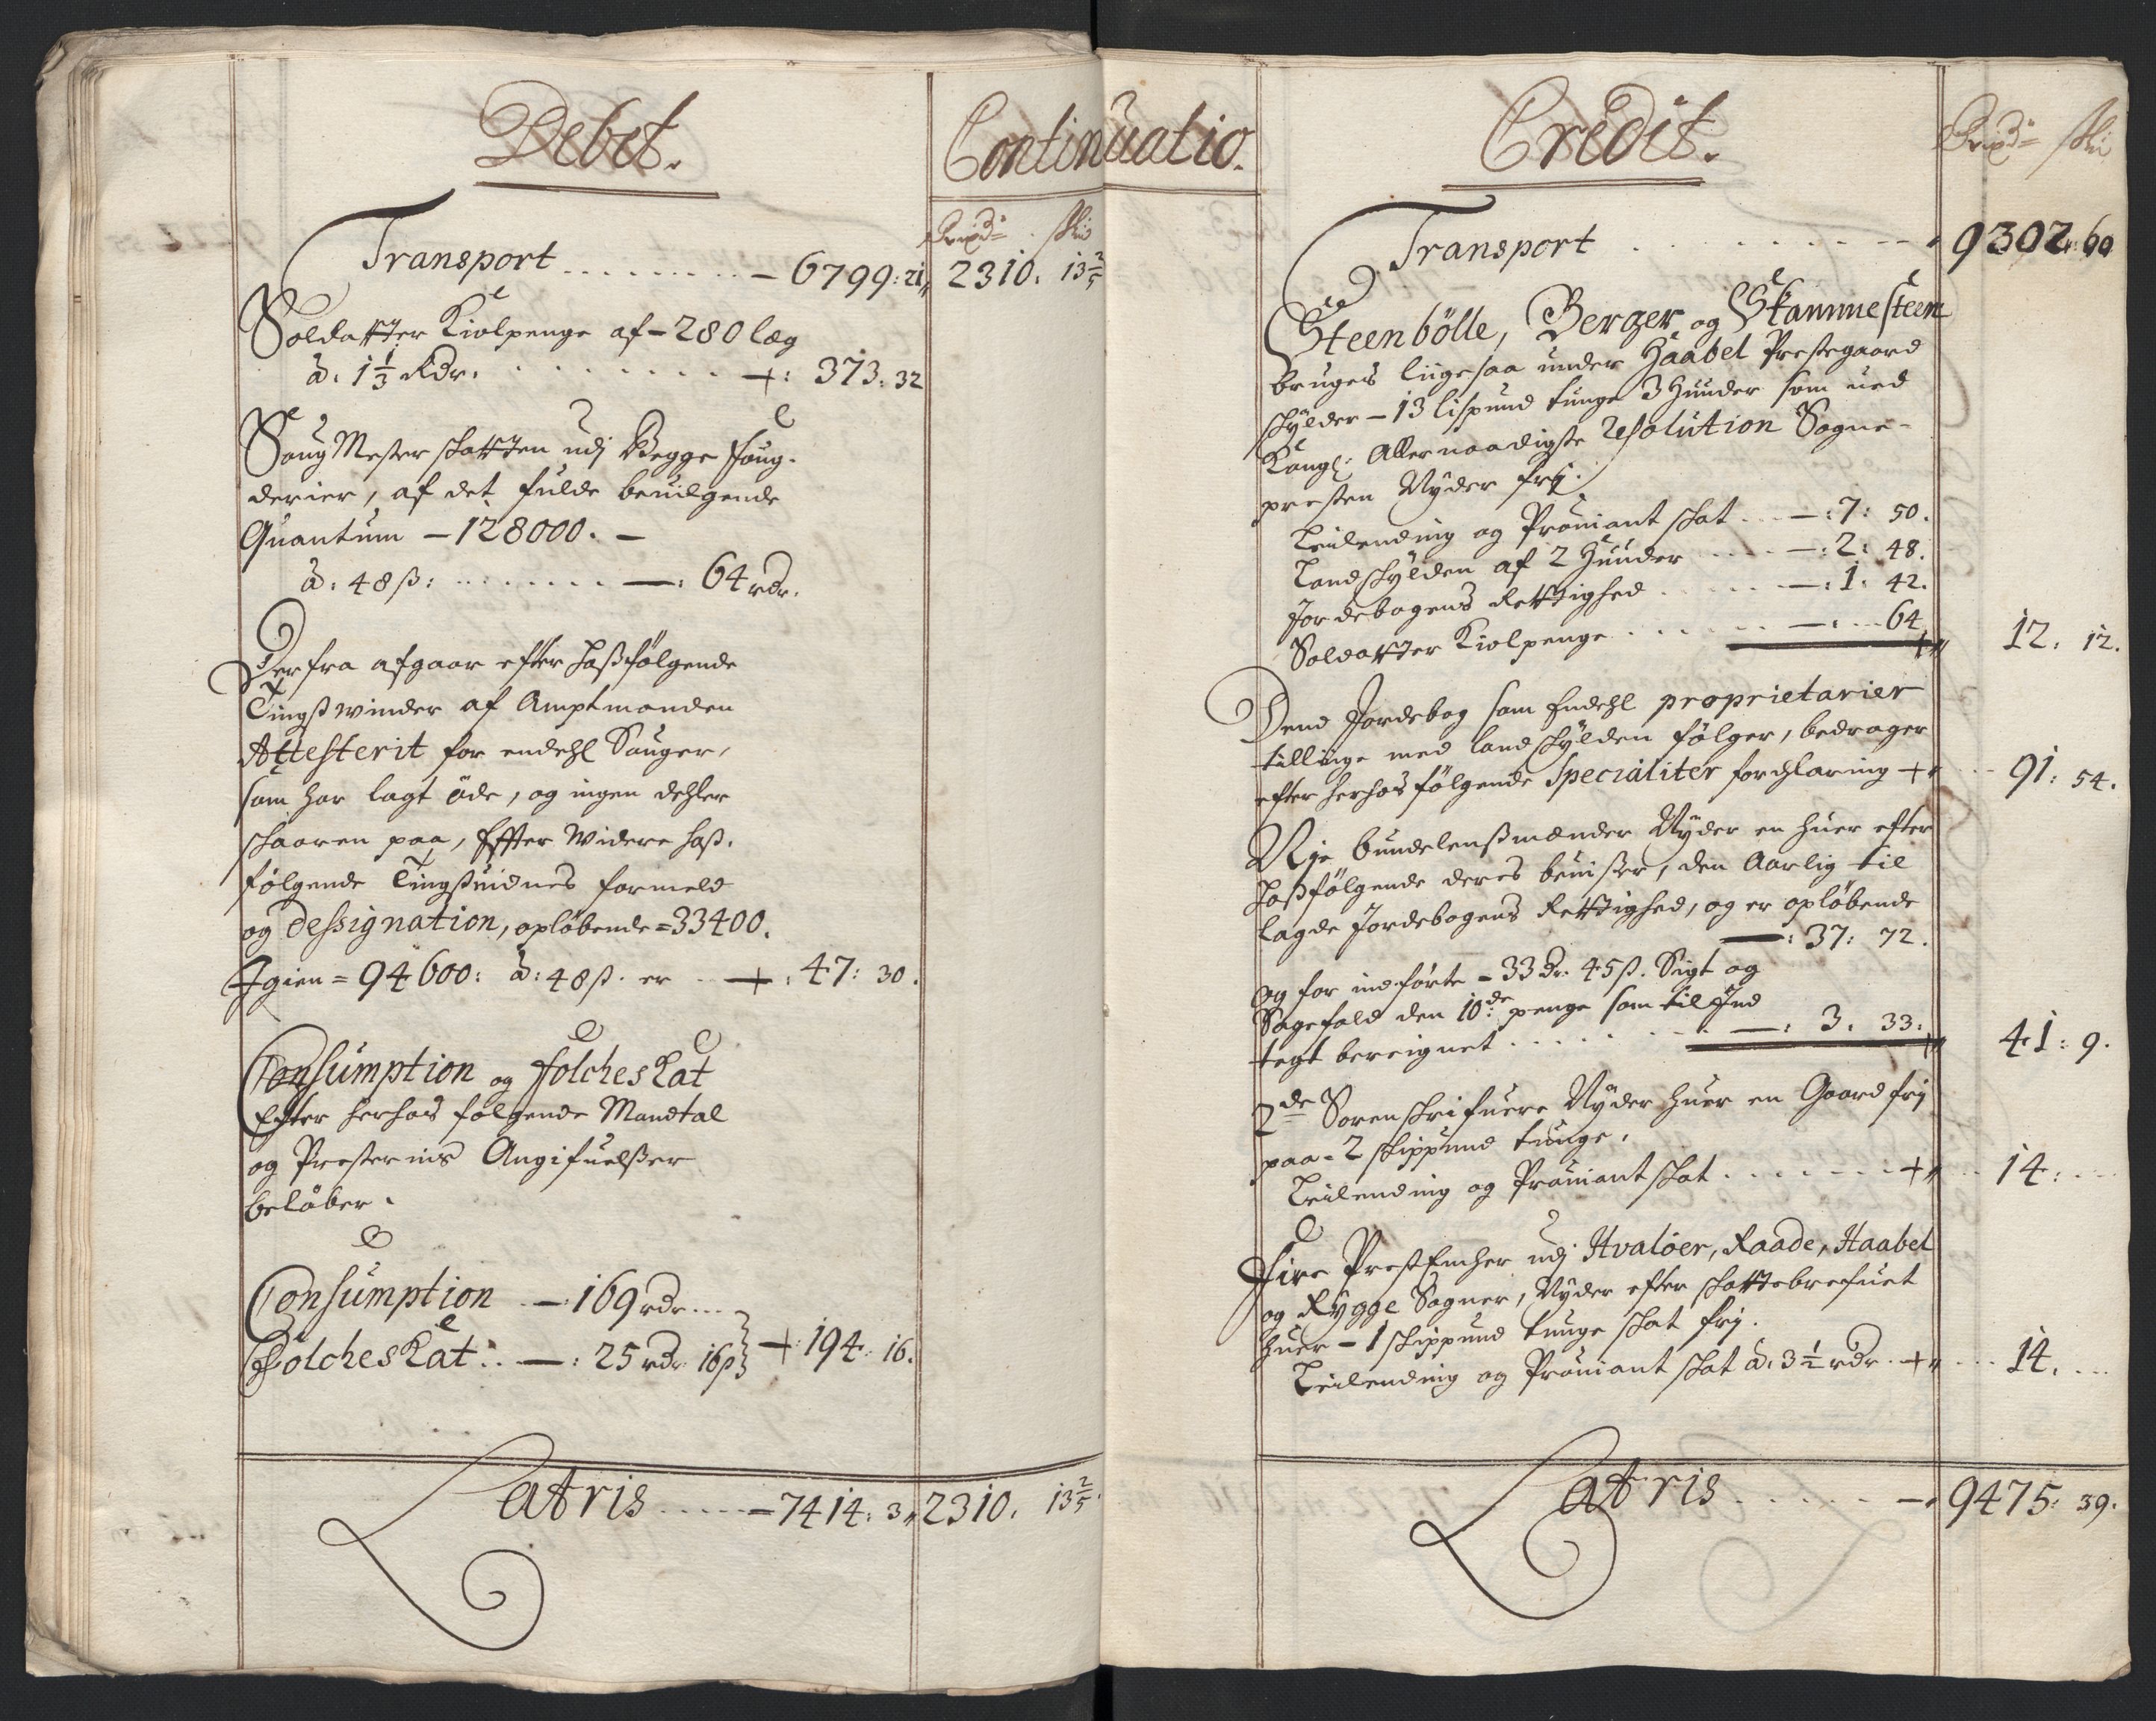 Debet.
Continuatio.
Rixdr skil
Transport - 6799: 21 2310. 13 2/5
Soldatter Kiolpenge af - 280 læg
à. 1 1/3 Rdr. +: 373: 32
Saug Mester skatten udj Begge foug-
derier, af det fulde beuilgende
Quantum - 128000. -
à: 48 ß: —: 64 rdr.
Derfra afgaar efter hoßfølgende
Tingßwinder af Amptmanden
Attesterit for endehl Sauger,
som har lagt öde, og ingen dehler
skaaren paa, Effter Widere hoß.
følgende Tingßuidnes formeld
og Dessignation, opløbende = 33400.
Igien = 94600: à: 48 ß. er +: 47: 30.
Consumption og Folcheskat
Efter herhos følgende Mandtal
og Presternis Angifuelßer
beløber.
Consumption —: 169 rdr
Folcheskat: —: 25 rdr 16 ß +: 194: 16.
Latris - 7414: 3 2310. 13 2/5.
Credit.
Rixdr skil
Transport 9302: 60
Steenbölle, Berger, og Skammesteen
bruges liigesaa under Haabel Prestegaard
skylder - 13 lispund tunge 3 Hunder som ued
Kongl: Allernaadigste Resolution Sogne-
presten Nyder frj.
Leilending og Prouiant skat —: 7: 50.
Landskylden af 2 Huuder —: 2: 48.
Jordebogens Rettighed —: 1: 42.
Soldatter Kiolpenge —: 64 12. 12.
Dend Jordebog som Endehl proprietarier
tillige med landskylden følger, bedrager
efter herhos følgende Specialiter forklaring + 91: 54.
Nje bundelenßmænder Nyder en huer efter
hoßfølgende deres beuißer, den Aarlig til
lagde Jordebogens Rettighed, og er opløbende
—: 37: 72.
og for indførte - 33 dr. 45 ß. Sigt og
Sagefald den 10de penge som til Ind
tegt bereignet —: 3. 33: 41: 9.
2de Sorenskrifuere Nyder huer en Gaard frj
paa - 2 skippund tunge,
Leilending og Prouiant skat + 14:
Fire PrestEncher udj Hvaløer, Raade, Haabel
og Rygge Sogner, Nyder efter skattebrefuet
huer - 1 skippund tunge skat frj.
Leilending og Prouiant skat à. 3 1/2 rdr + 14.
Latris - 9475: 39.